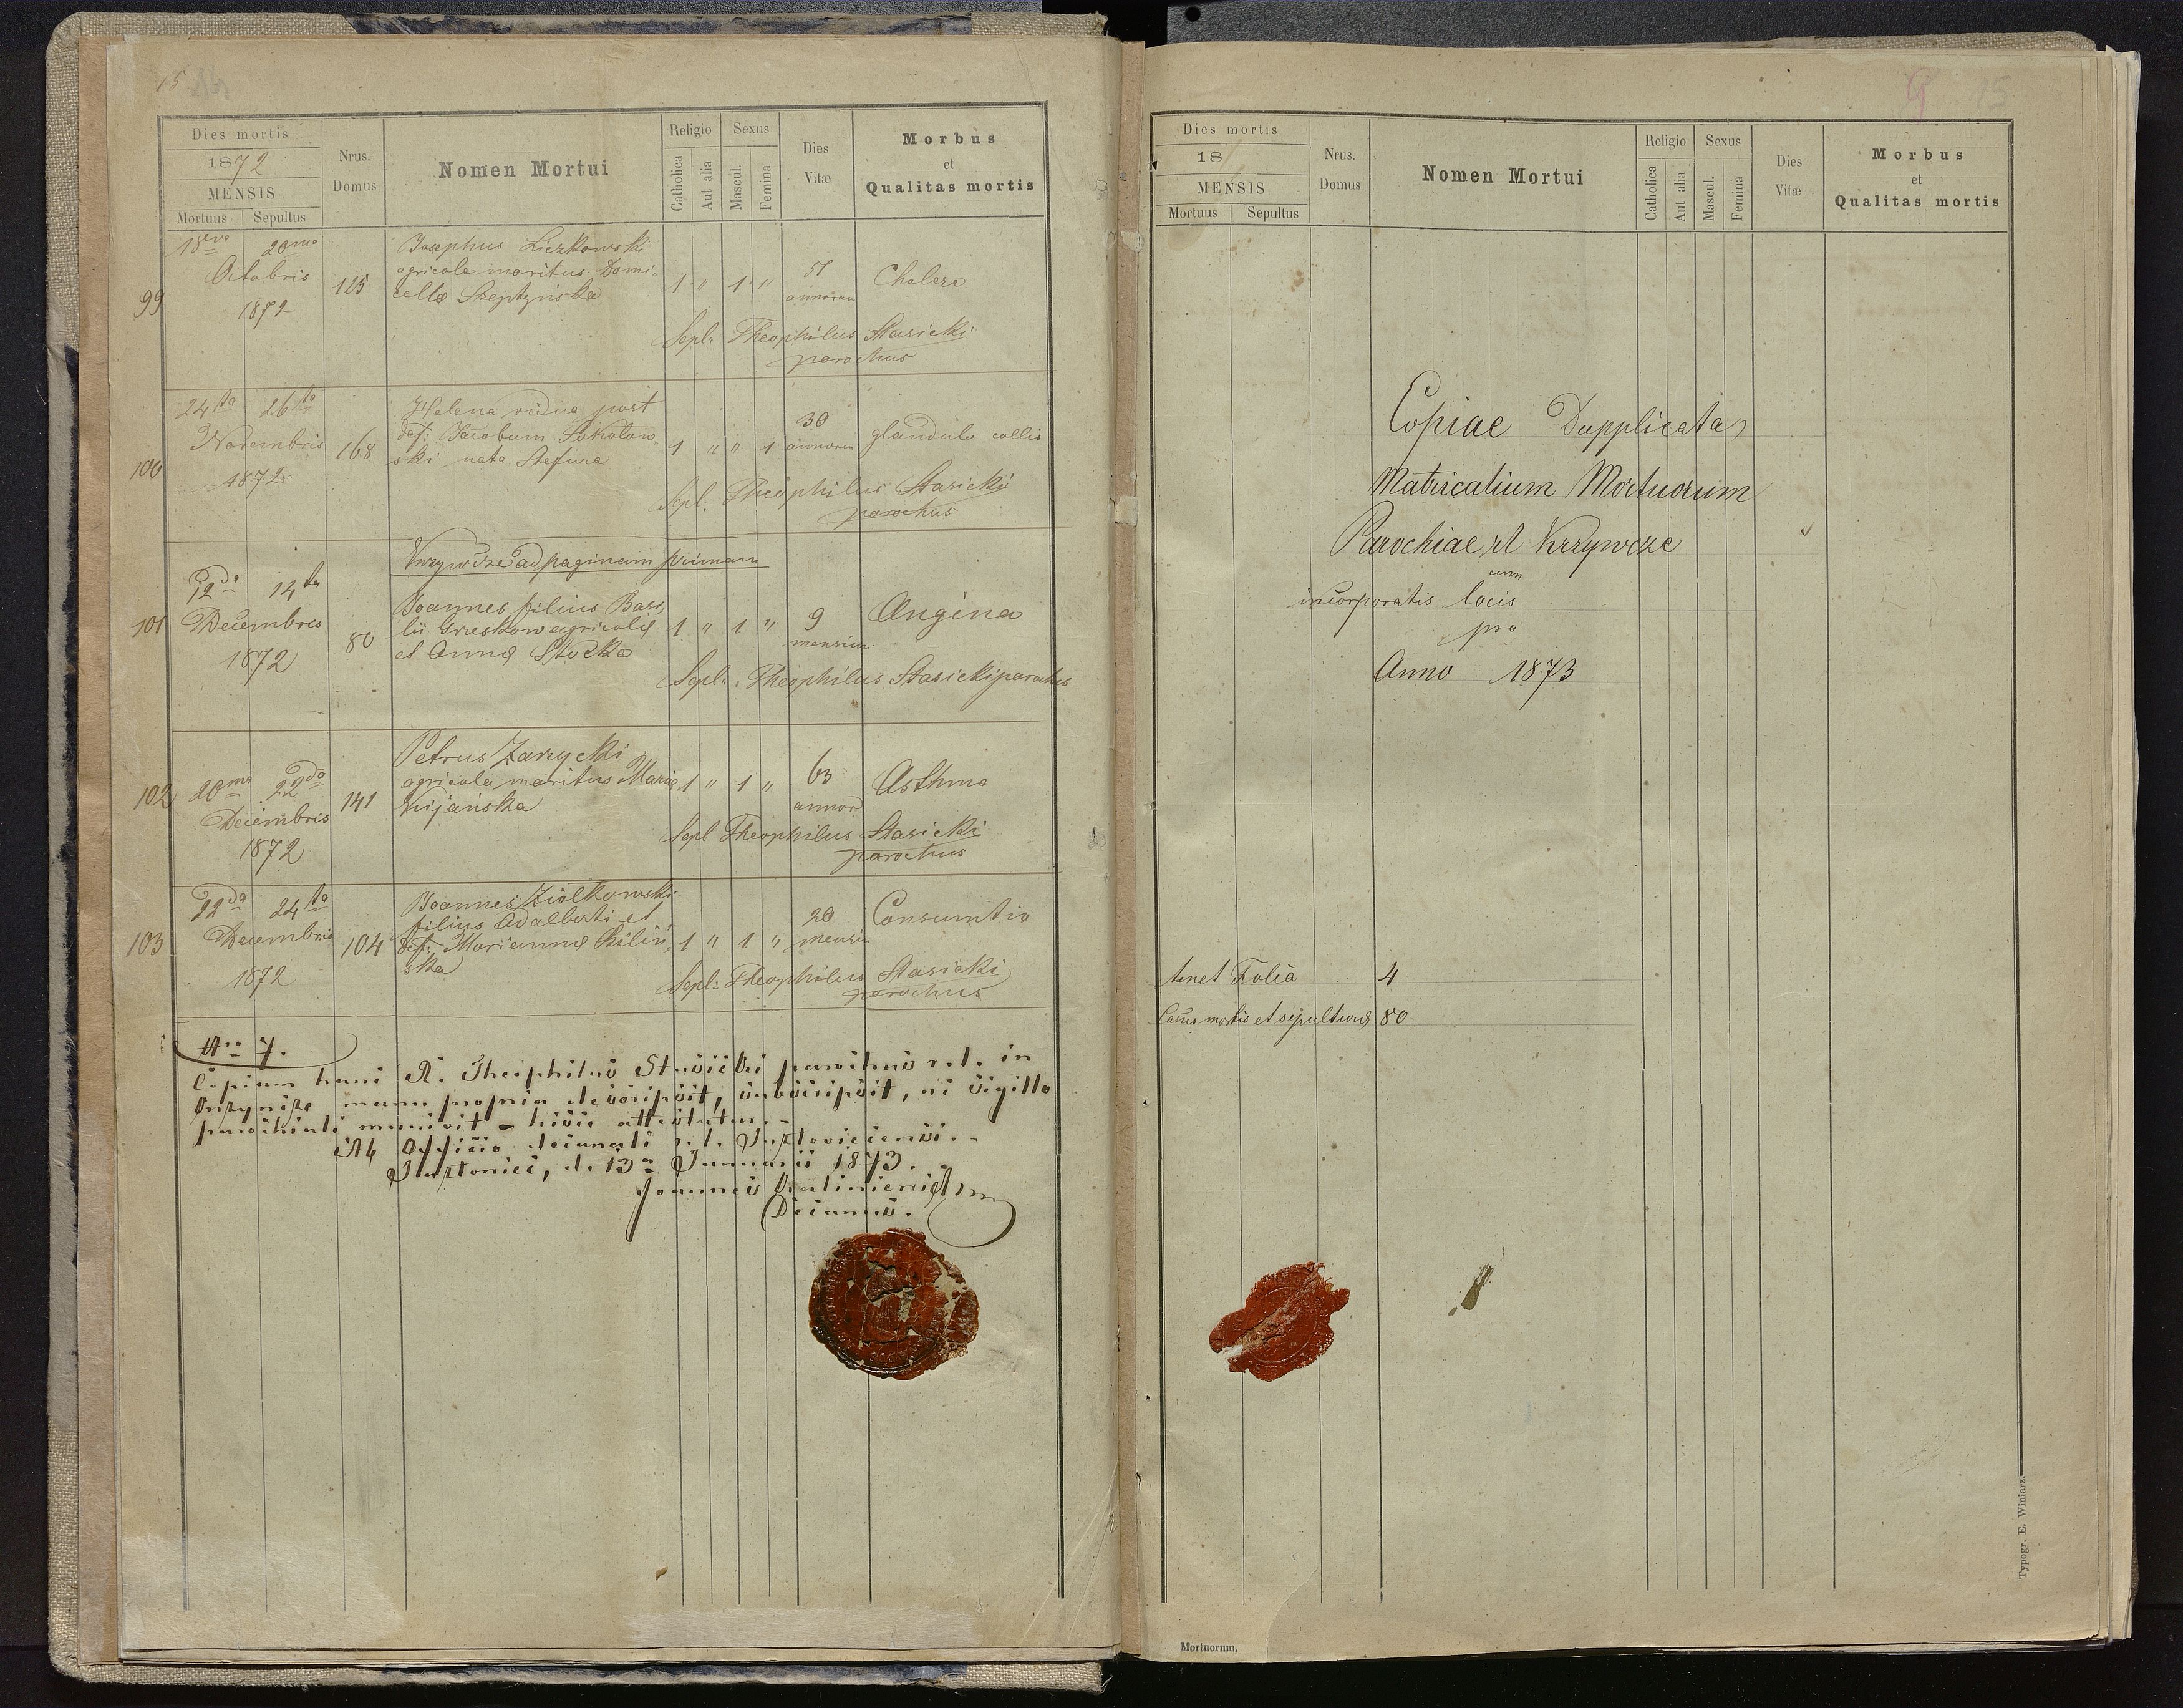 15
Dies mortis
1872
MENSIS
Mortuus Sepultus
Nrus. Domus
Nomen Mortui
Religio
Catholica
Aut alia
Sexus
Mascul.
Femina
Dies Vitæ
Morbus
et
Qualitas mortis
99
18va 20ma
Octobris
1872
125
Josephus Liczkowski
agricola maritus Domi-
cellæ Szeptyńska
1 " 1 "
51
annorum
Cholera
Sepl: Theophilus Stasicki
parochus
100
24ta 26ta
Novembris
1872
168
Helena vidua post
def: Jacobum Sokołow-
ski nata Stefura
1 " " 1
30
annorum
glandula collis
Sepl: Theophilus Stasicki
parochus
Krzywcze ad paginam primam
101
12da 14ta
Decembris
1872
80
Joannes filius Basi-
lii Greskow agricolæ
et Annæ Stocka
1 " 1 "
9
mensium
Angina
Sepl: Theophilus Stasicki parochus
102
20ma 22da
Decembris
1872
141
Petrus Zarzycki
agricola maritus Mariæ
Kijańska
1 " 1 "
63
annor
Asthma
Sepl Theophilus Stasicki
parochus
103
22da 24ta
Decembris
1872
104
Joannes Ziółkowski
filius Adalberti et
def: Mariannæ Biliń-
ska
1 " 1 "
20
mensi
Consumtio
Sepl: Theophilus Stasicki
parochus
Nro 7.
Copiam hanc R. Theophilus Stasicki parochus r. l. in
Krzywcze manu propria descripsit, subscripsit, ac sigillo
parochiali munivit - hisce attestatur. -
Ab Officio decanali r. l. -
d. 13a Januarii 1873.
Joannes
Decanus.
15
Dies mortis
18
MENSIS
Mortuus Sepultus
Nrus. Domus
Nomen Mortui
Religio
Catholica
Aut alia
Sexus
Mascul.
Femina
Dies Vitæ
Morbus
et
Qualitas mortis
Copiae Dupplicata
Matricalium Mortuorum
Parochiae r l Krzywcze
cum
incorporatis locis
pro
Anno 1873
tenet Folia 4
Casus mortis et sepulturæ 80
Typogr. E. Winiarz.
Mortuorum.